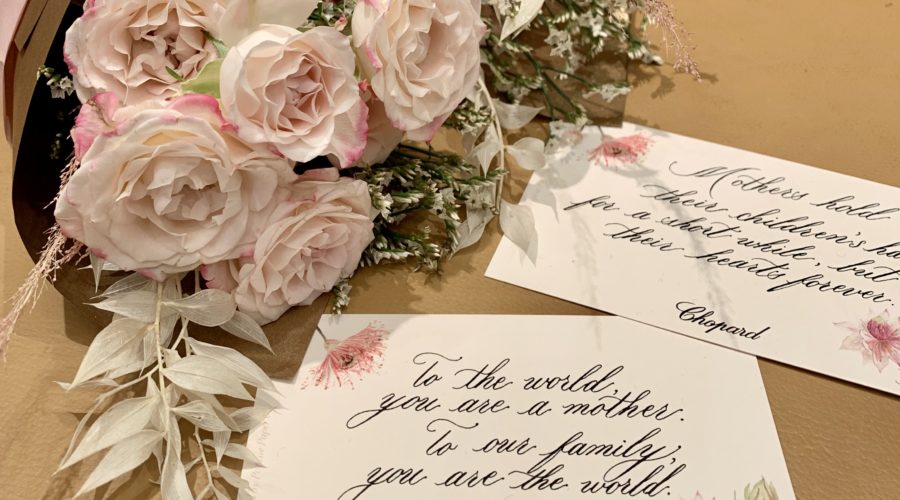 Mothers hold
their children's ha
for a short while, but
their hearts forever.
Chopard
To the world,
you are a mother.
To our family,
you are the world.